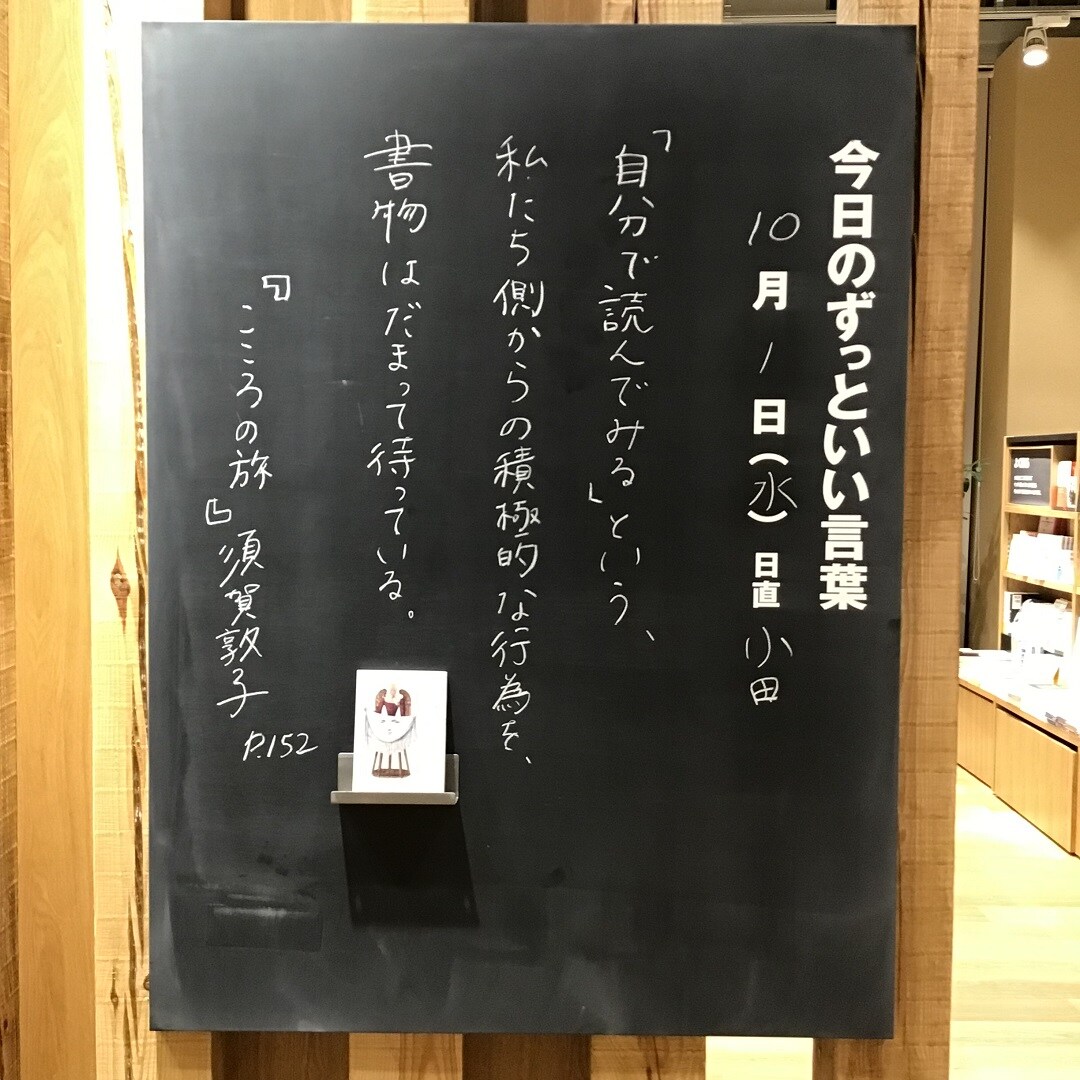 今日のずっといい言葉
10月1日(水)日直 小田
「自分で読んでみる」という、
私たち側からの積極的な行為を、
書物はだまって待っている。
『こころの旅』須賀敦子
P.152